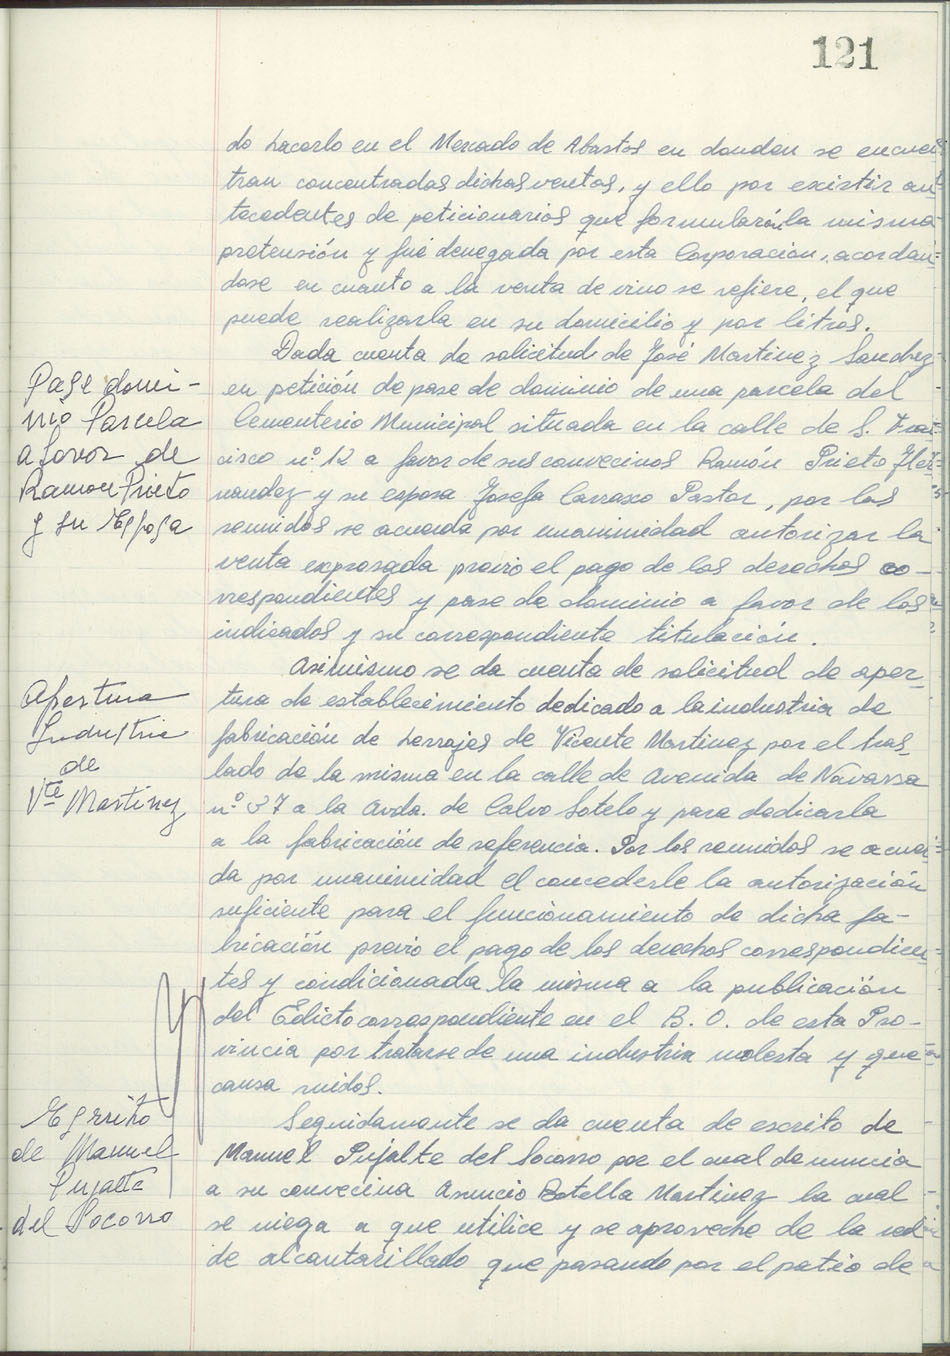 121
do hacerlo en el Mercado de Abastos en donden se encuen
tran concentradas dichas ventas, y ello por existir an
tecedentes de peticionarios que formularón la misma
pretensión y fué denegada por esta Corporación, acordan
dose en cuanto a la venta de vino se refiere, el que
puede realizarla en su domicilio y por litros.
Pase domi-
nio Parcela
a favor de
Ramon Prieto
y su Esposa
Dada cuenta de solicitud de José Martinez Sanchez
en petición de pase de dominio de una parcela del
Cementerio Municipal situada en la calle de S. Fran
cisco nº. 12 a favor de sus convecinos Ramón Prieto Her
nandez y su esposa Josefa Carrasco Pastor, por los
reunidos se acuerda por unanimidad autorizar la
venta expresada previo el pago de los derechos co-
rrespondientes y pase de dominio a favor de los
indicados y su correspondiente titulación.
Apertura
Industria
de
Vte Martinez
Asimismo se da cuenta de solicitud de aper-
tura de establecimiento dedicado a la industria de
fabricación de herrajes de Vicente Martinez por el tras-
lado de la misma en la calle de Avenida de Navarra
nº 37 a la Avda. de Calvo Sotelo y para dedicarla
a la fabricación de referencia. Por los reunidos se acuer
da por unanimidad el concederle la autorización
suficiente para el funcionamiento de dicha fa-
bricación previo el pago de los derechos correspondien
tes y condicionada la misma a la publicación
del Edicto correspondiente en el B. O. de esta Pro-
vincia por tratarse de una industria molesta y que
causa ruidos.
Escrito
de Manuel
Pujalte
del Socorro
Seguidamente se da cuenta de escrito de
Manuel Pujalte del Socorro por el cual denuncia
a su convecina Asuncio Botella Martinez la cual
se niega a que utilice y se aproveche de la red
de alcantarillado que pasando por el patio de